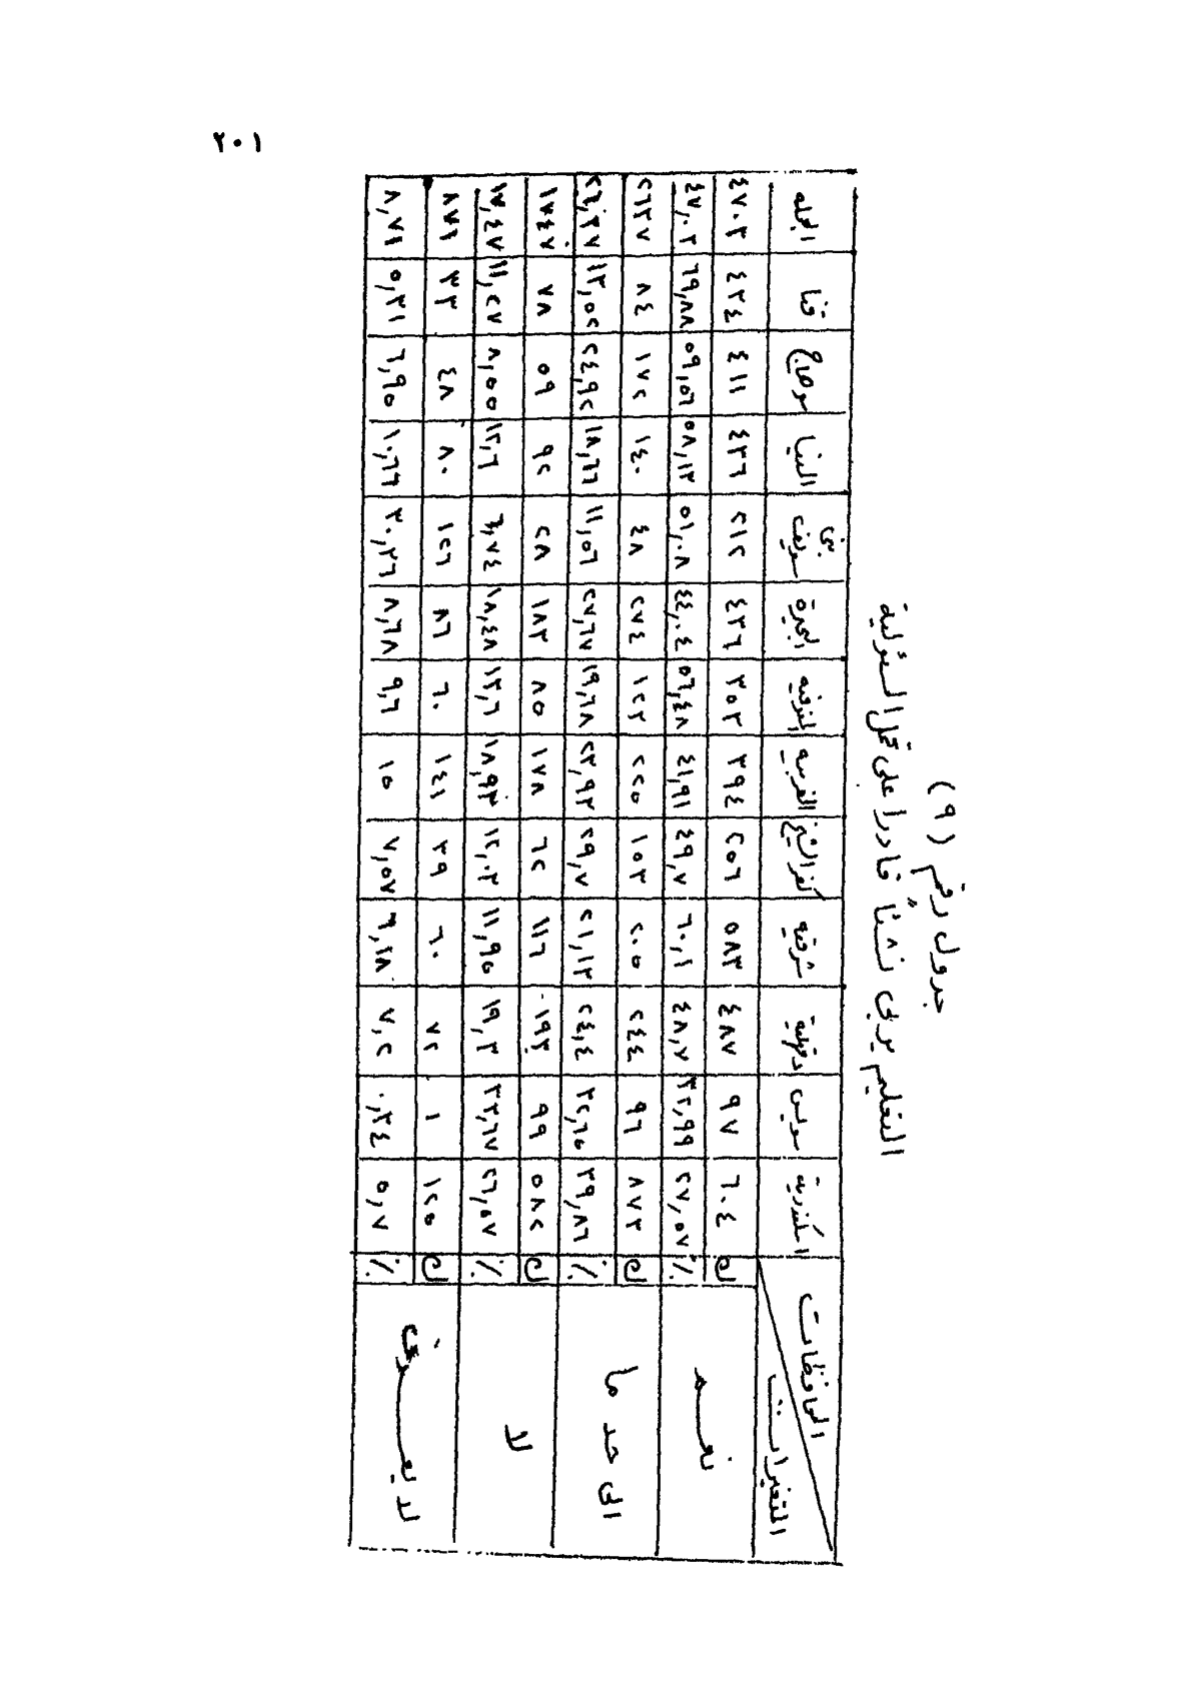 ٢٠١
جدول رقم (٩)
التعليم يربى نشئاً قادرا على تحمل المسئولية
المحافظات المتغيرات اسكندرية سويس دقهلية شرقيه كفر الشيخ الغربيه المنوفيه البحيرة بنى سويف المنيا سوهاج قنا الجمله
نعم ك ٦٠٤ ٩٧ ٤٨٧ ٥٨٣ ٢٥٦ ٣٩٤ ٣٥٣ ٤٣٦ ٢١٢ ٤٣٦ ٤١١ ٤٣٤ ٤٧٠٣
٪ ٢٧,٥٧ ٣٢,٩٩ ٤٨,٧ ٦٠,١ ٤٩,٧ ٤١,٩١ ٥٦,٤٨ ٤٤,٠٤ ٥١,٠٨ ٥٨,١٣ ٥٩,٥٦ ٦٩,٨٨ ٤٧,٠٣
الى حد ما ك ٨٧٣ ٩٦ ٢٤٤ ٢٠٥ ١٥٣ ٢٢٥ ١٢٣ ٢٧٤ ٤٨ ١٤٠ ١٧٢ ٨٤ ٢٦٣٧
٪ ٣٩,٨٦ ٣٢,٦٥ ٢٤,٤ ٢١,١٣ ٢٩,٧ ٢٣,٩٣ ١٩,٦٨ ٢٧,٦٧ ١١,٥٦ ١٨,٦٦ ٢٤,٩٢ ١٣,٥٢ ٢٦,٣٧
لا ك ٥٨٢ ٩٩ ١٩٣ ١١٦ ٦٢ ١٧٨ ٨٥ ١٨٣ ٢٨ ٩٢ ٥٩ ٧٨ ١٧٤٧
٪ ٢٦,٥٧ ٣٣,٦٧ ١٩,٣ ١١,٩٥ ١٢,٠٣ ١٨,٩٣ ١٣,٦ ١٨,٤٨ ٦,٧٤ ١٢,٦ ٨,٥٥ ١١,٢٧ ١٧,٤٧
لا يعرف ك ١٢٥ ١ ٧٢ ٦٠ ٣٩ ١٤١ ٦٠ ٨٦ ١٢٦ ٨٠ ٤٨ ٣٣ ٨٧١
٪ ٥,٧ ٠,٣٤ ٧,٢ ٦,١٨ ٧,٥٧ ١٥ ٩,٦ ٨,٦٨ ٣٠,٣٦ ١٠,٦٦ ٦,٩٥ ٥,٣١ ٨,٧١